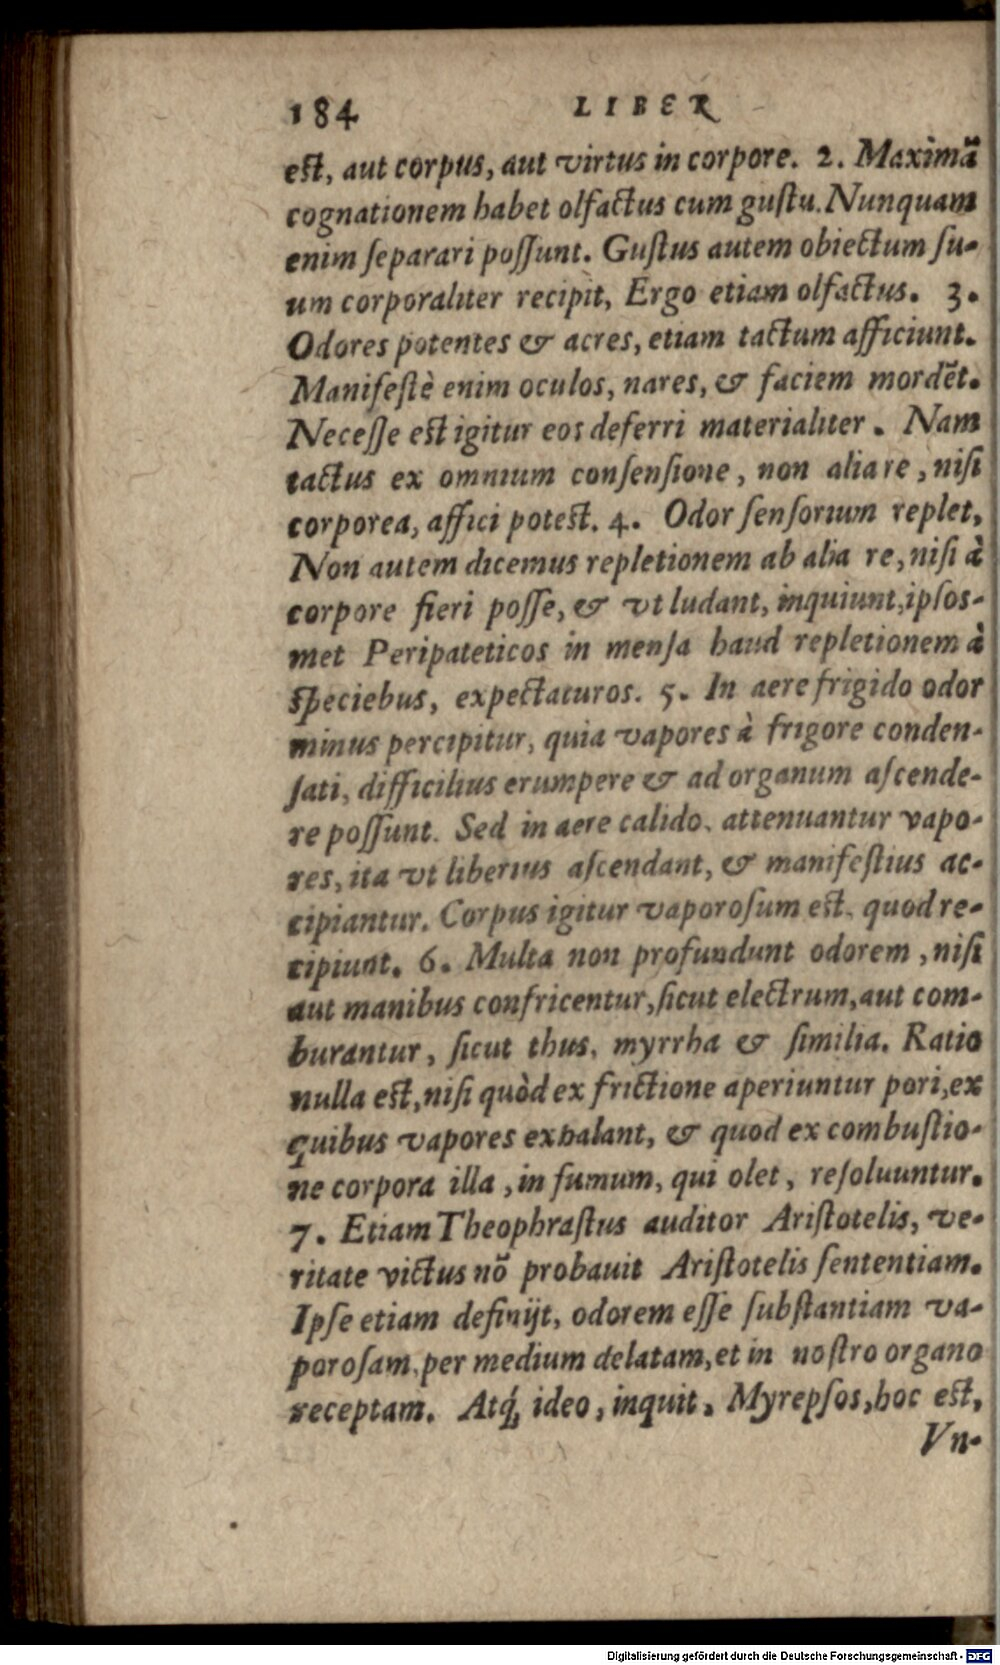 184 LIBER
est, aut corpus, aut virtus in corpore. 2. Maximã
cognationem habet olfactus cum gustu. Nunquam
enim ſeparari poſſunt. Guſtus autem obiectum ſu-
um corporaliter recipit, Ergo etiam olfactus. 3.
Odores potentes & acres, etiam tactum afficiunt.
Manifeſtè enim oculos, nares, & faciem mordẽt.
Neceſſe est igitur eos deferri materialiter. Nam
tactus ex omnium conſenſione, non alia re, niſi
corporea, affici potest. 4. Odor ſenſorium replet,
Non autem dicemus repletionem ab alia re, niſi à
corpore fieri poſſe, & vt ludant, inquiunt, ipſos-
met Peripateticos in menſa haud repletionem à
speciebus, expectaturos. 5. In aere frigido odor
minus percipitur, quia vapores à frigore conden-
ſati, difficilius erumpere & ad organum aſcende-
re poſſunt. Sed in aere calido, attenuantur vapo-
res, ita vt liberius aſcendant, & manifeſtius ac-
cipiantur. Corpus igitur vaporoſum est, quod re-
cipiunt. 6. Multa non profundunt odorem, niſi
aut manibus confricentur, ſicut electrum, aut com-
burantur, ſicut thus, myrrha & ſimilia. Ratio
nulla est, niſi quòd ex frictione aperiuntur pori, ex
quibus vapores exhalant, & quod ex combuſtio-
ne corpora illa, in fumum, qui olet, reſoluuntur.
7. Etiam Theophraſtus auditor Ariſtotelis, ve-
ritate victus nõ probauit Ariſtotelis ſententiam.
Ipſe etiam definijt, odorem eſſe ſubſtantiam va-
poroſam, per medium delatam, et in noſtro organo
receptam. Atq́; ideo, inquit, Myrepſos, hoc est,
Vn-
Digitalisierung gefördert durch die Deutsche Forschungsgemeinschaft - DFG